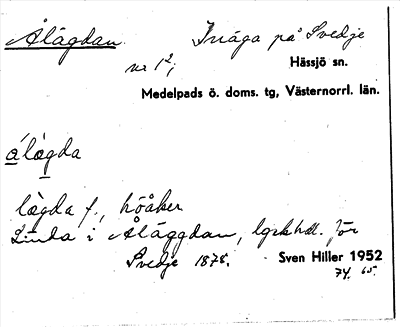 Ålägdan. Inäga på Svedje
nr 1²; Hässjö sn.
Medelpads ö. doms. tg, Västernorrl. län.
álægda
lægda f., höåker
Linda i Åläggdan, lgskhdl. för
Svedje 1878. Sven Hiller 1952
74. 65.